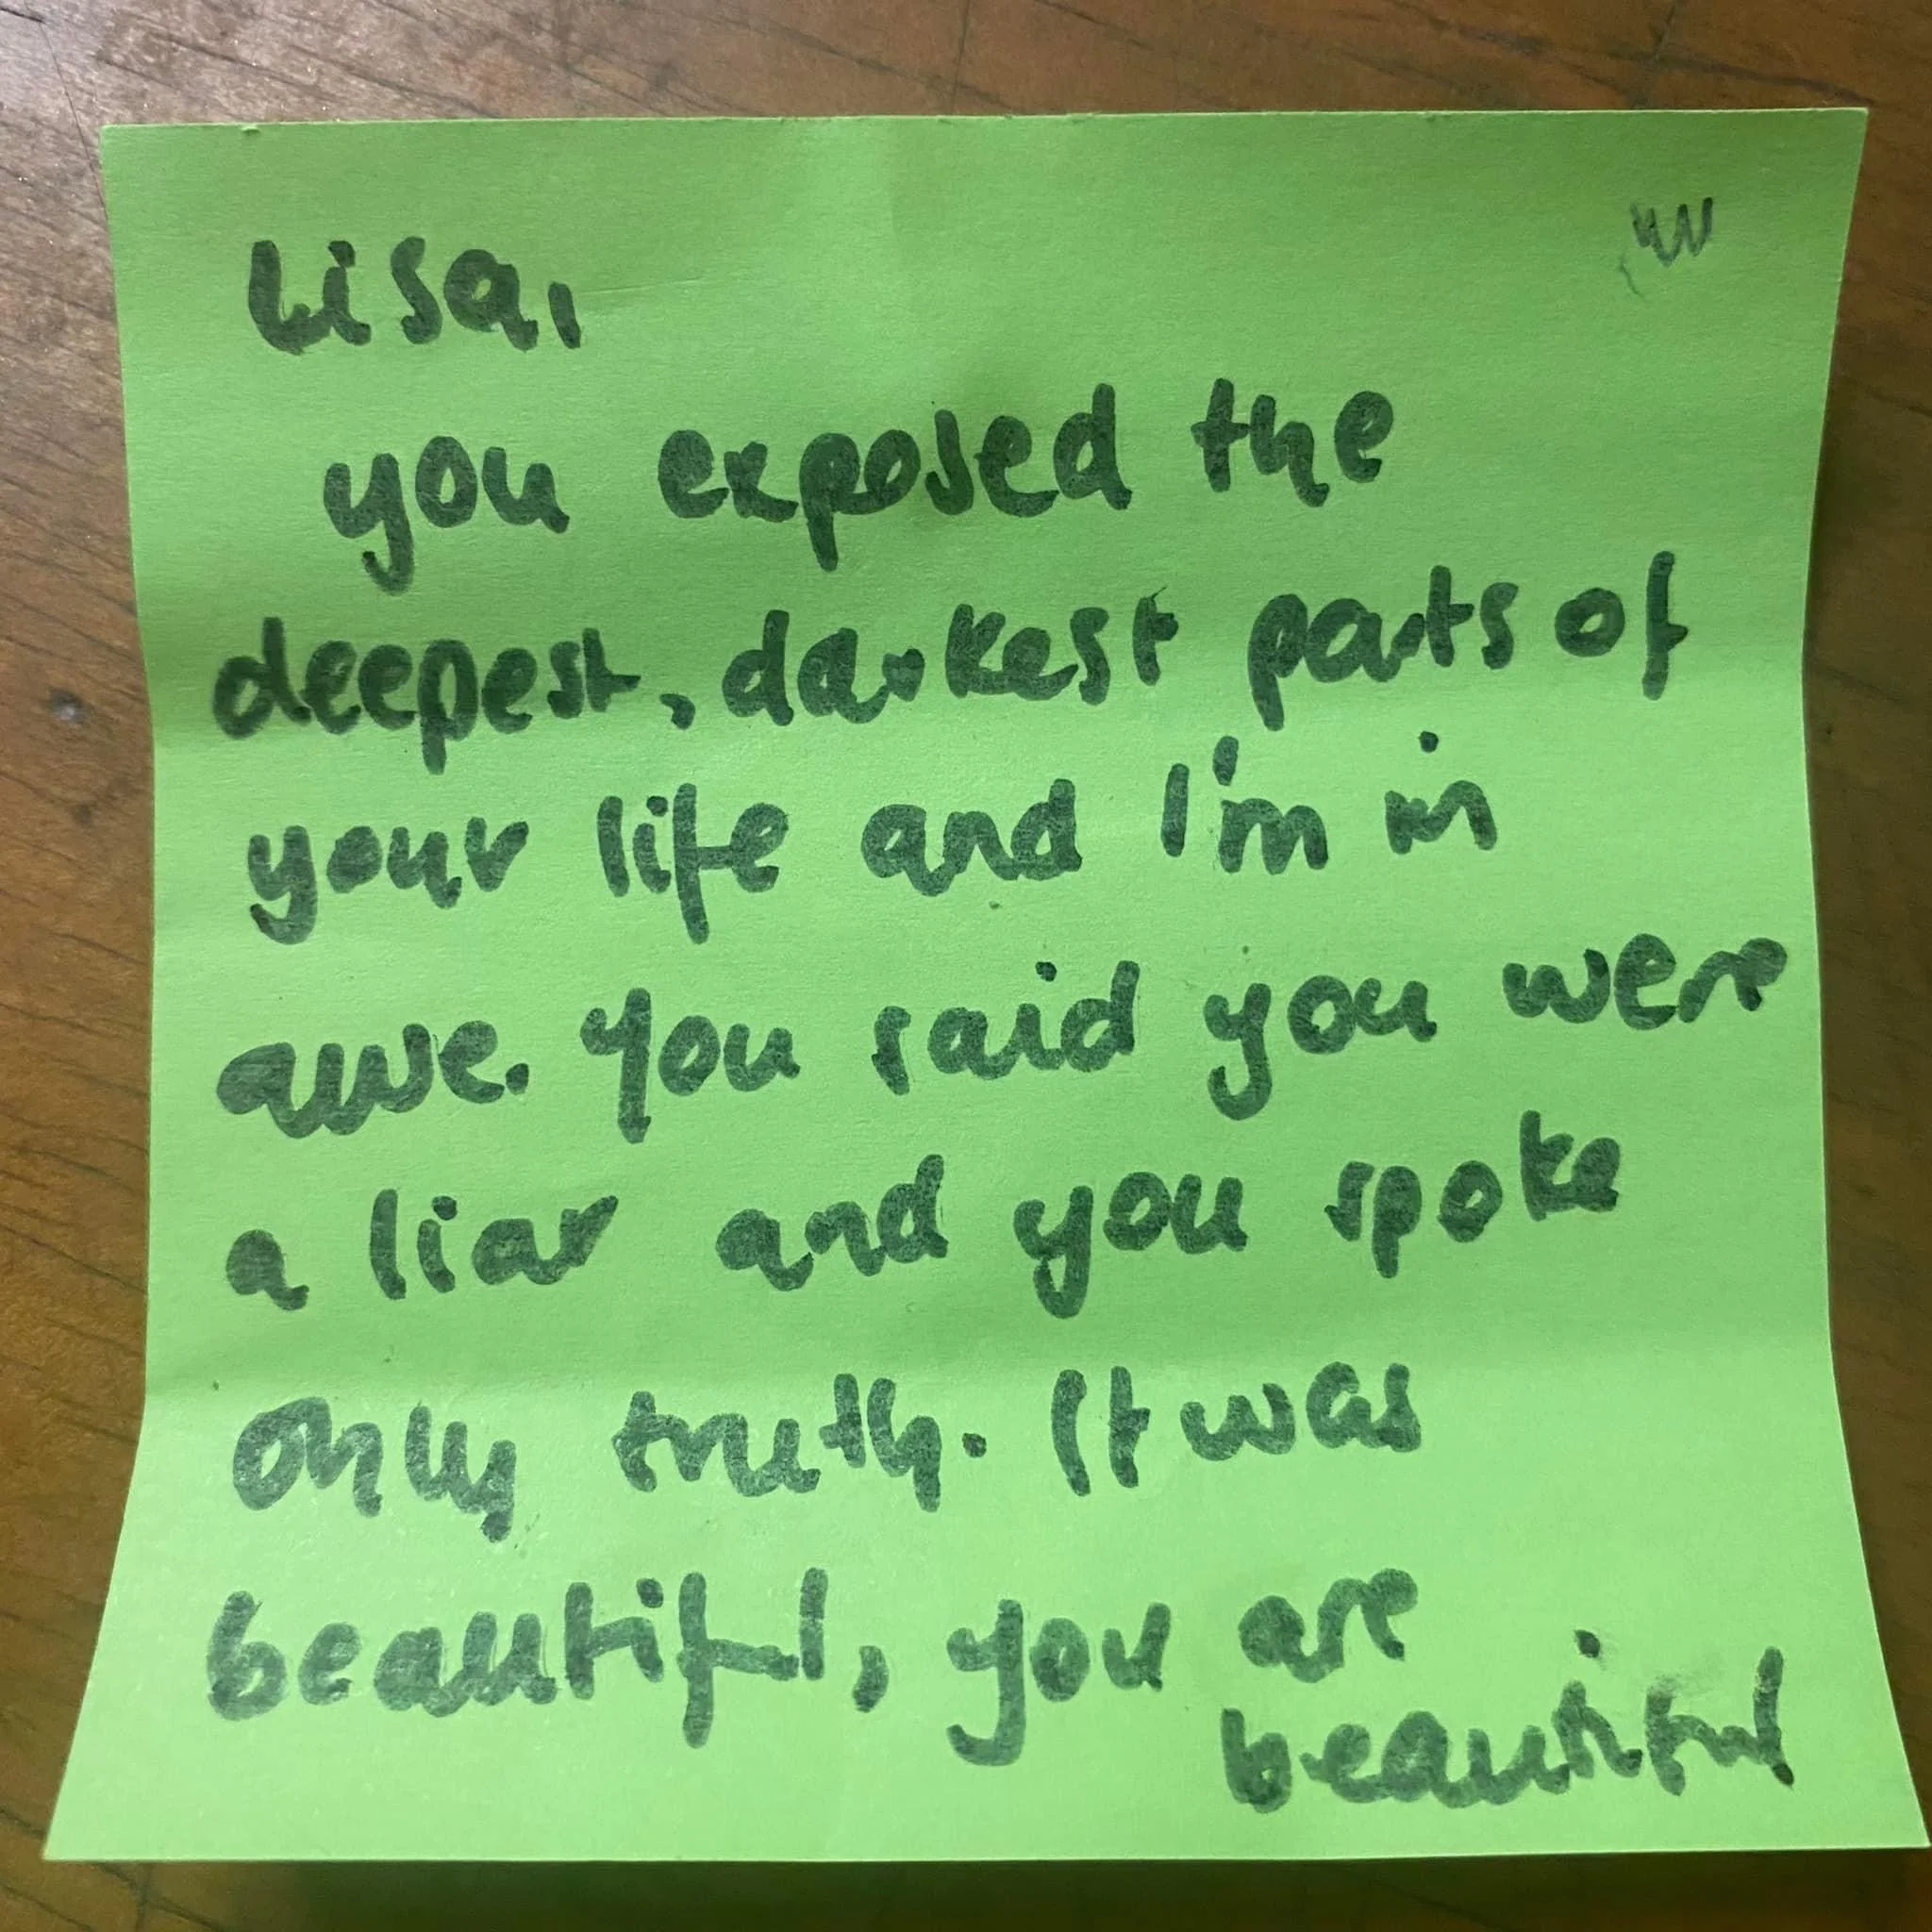 Lisa,
you exposed the
deepest, darkest parts of
your life and I'm in
awe. You said you were
a liar and you spoke
only truth. It was
beautiful, you are
beautiful